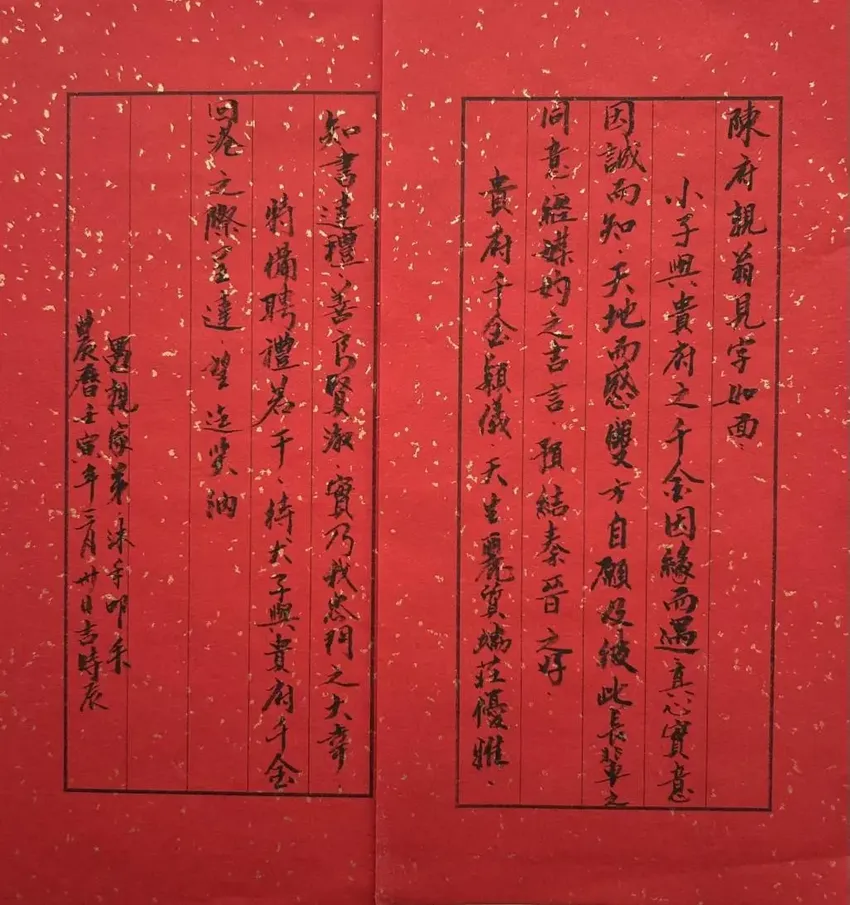 陳府親翁見字如面、
小子與貴府之千金因緣而遇真心實意
因誠而知天地而感雙方自願及彼此長輩之
同意、經媒妁之吉言、預結秦晉之好、
貴府千金穎儀天生麗質端莊優雅、
知書達禮、善良賢淑、實乃我忝門之大幸、
特備聘禮若干、待犬子與貴府千金
回港之際呈達、望迄笑納
愚親家弟 沐手叩禾
農曆壬寅年三月廿日吉時辰